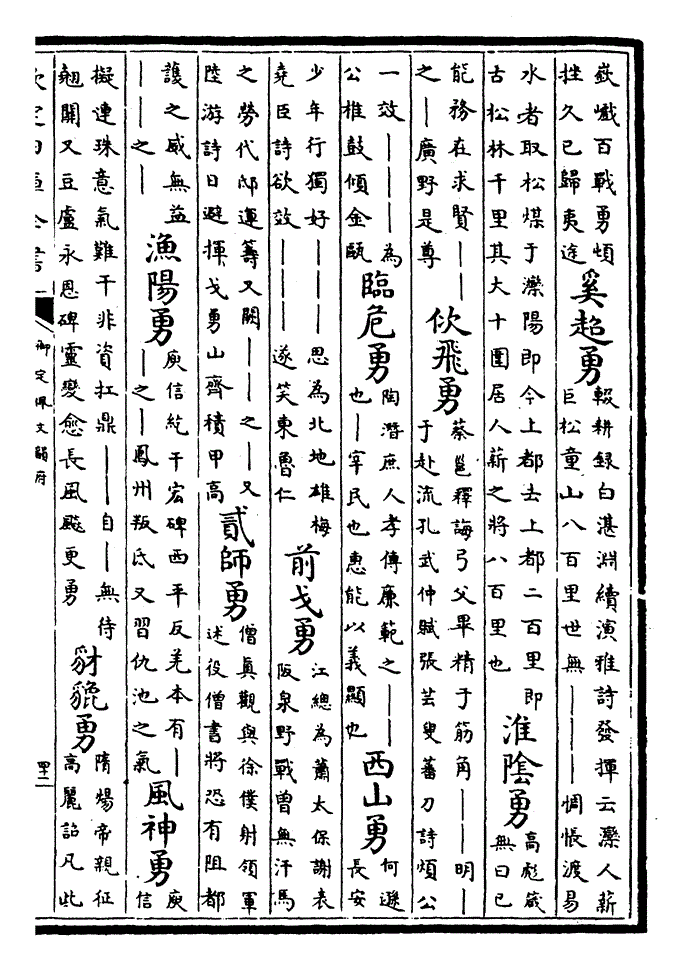 嶔巇百戰勇頃
挫久已歸夷途
奚超勇
輟耕録白湛淵續演雅詩發揮云灤人薪
巨松童山八百里世無丨丨丨惆悵渡易
水者取松煤于灤陽即今上都去上都二百里即
古松林千里其大十圍居人薪之將八百里也
淮陰勇
高彪箴
無曰已
能務在求賢丨丨
之丨廣野是尊
佽飛勇
蔡邕釋誨弓父畢精于筋角丨丨明丨
于赴流孔武仲賦張芸叟蕃刀詩煩公
一效丨丨丨為
公椎鼓傾金甌
臨危勇
陶潛庶人孝傳廉範之丨丨
也丨宰民也惠能以義顯也
西山勇
何遜
長安
少年行獨好丨丨丨思為北地雄梅
堯臣詩欲效丨丨丨遂笑東魯仁
前戈勇
江總為蕭太保謝表
阪泉野戰曽無汗馬
之勞代邸運籌又闕丨丨之丨又
陸游詩日避揮戈勇山齊積甲高
貳師勇
僧真觀與徐僕射領軍
述役僧書將恐有阻都
護之威無益
丨丨之丨
漁陽勇
庾信紇干宏碑西平反羌本有丨
丨之丨鳳州叛氐又習仇池之氣
風神勇
庾
信
擬連珠意氣難干非資扛鼎丨丨自丨無待
翹關又豆盧永恩碑靈變愈長風飈更勇
豺貔勇
隋煬帝親征
高麗詔凡此
欽定四庫全書
御定佩文韻府